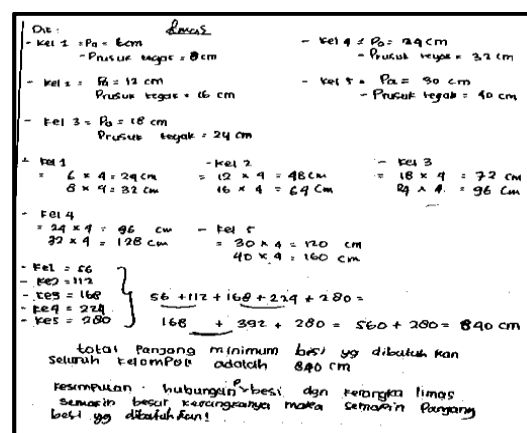 Dit : limas
- Kel 1 = Pa = 6cm
- Prusuk tegak = 8 cm
- Kel 4 = Pa = 24 cm
- Prusuk tegak = 32 cm
- Kel 2 = Pa = 12 cm
Prusuk tegak = 16 cm
- Kel 5 = Pa = 30 cm
- Prusuk tegak = 40 cm
- Kel 3 = Pa = 18 cm
Prusuk tegak = 24 cm
* Kel 1
= 6 x 4 = 24 cm
8 x 4 = 32 cm
- Kel 2
= 12 x 4 = 48 cm
16 x 4 = 64 cm
- Kel 3
= 18 x 4 = 72 cm
24 x 4 = 96 cm
- Kel 4
= 24 x 4 = 96 cm
32 x 4 = 128 cm
- Kel 5
= 30 x 4 = 120 cm
40 x 4 = 160 cm
- Ke1 = 56
- Ke2 = 112
- Ke3 = 168
- Ke4 = 224
- Ke5 = 280
56 + 112 + 168 + 224 + 280 =
168 + 392 + 280 = 560 + 280 = 840 cm
total Panjang minimum besi yg dibutuhkan
seluruh kelompok adalah 840 cm
kesimpulan : hubungan P besi dgn kerangka limas
semakin besar kerangkanya maka semakin Panjang
besi yg dibutuhkan!